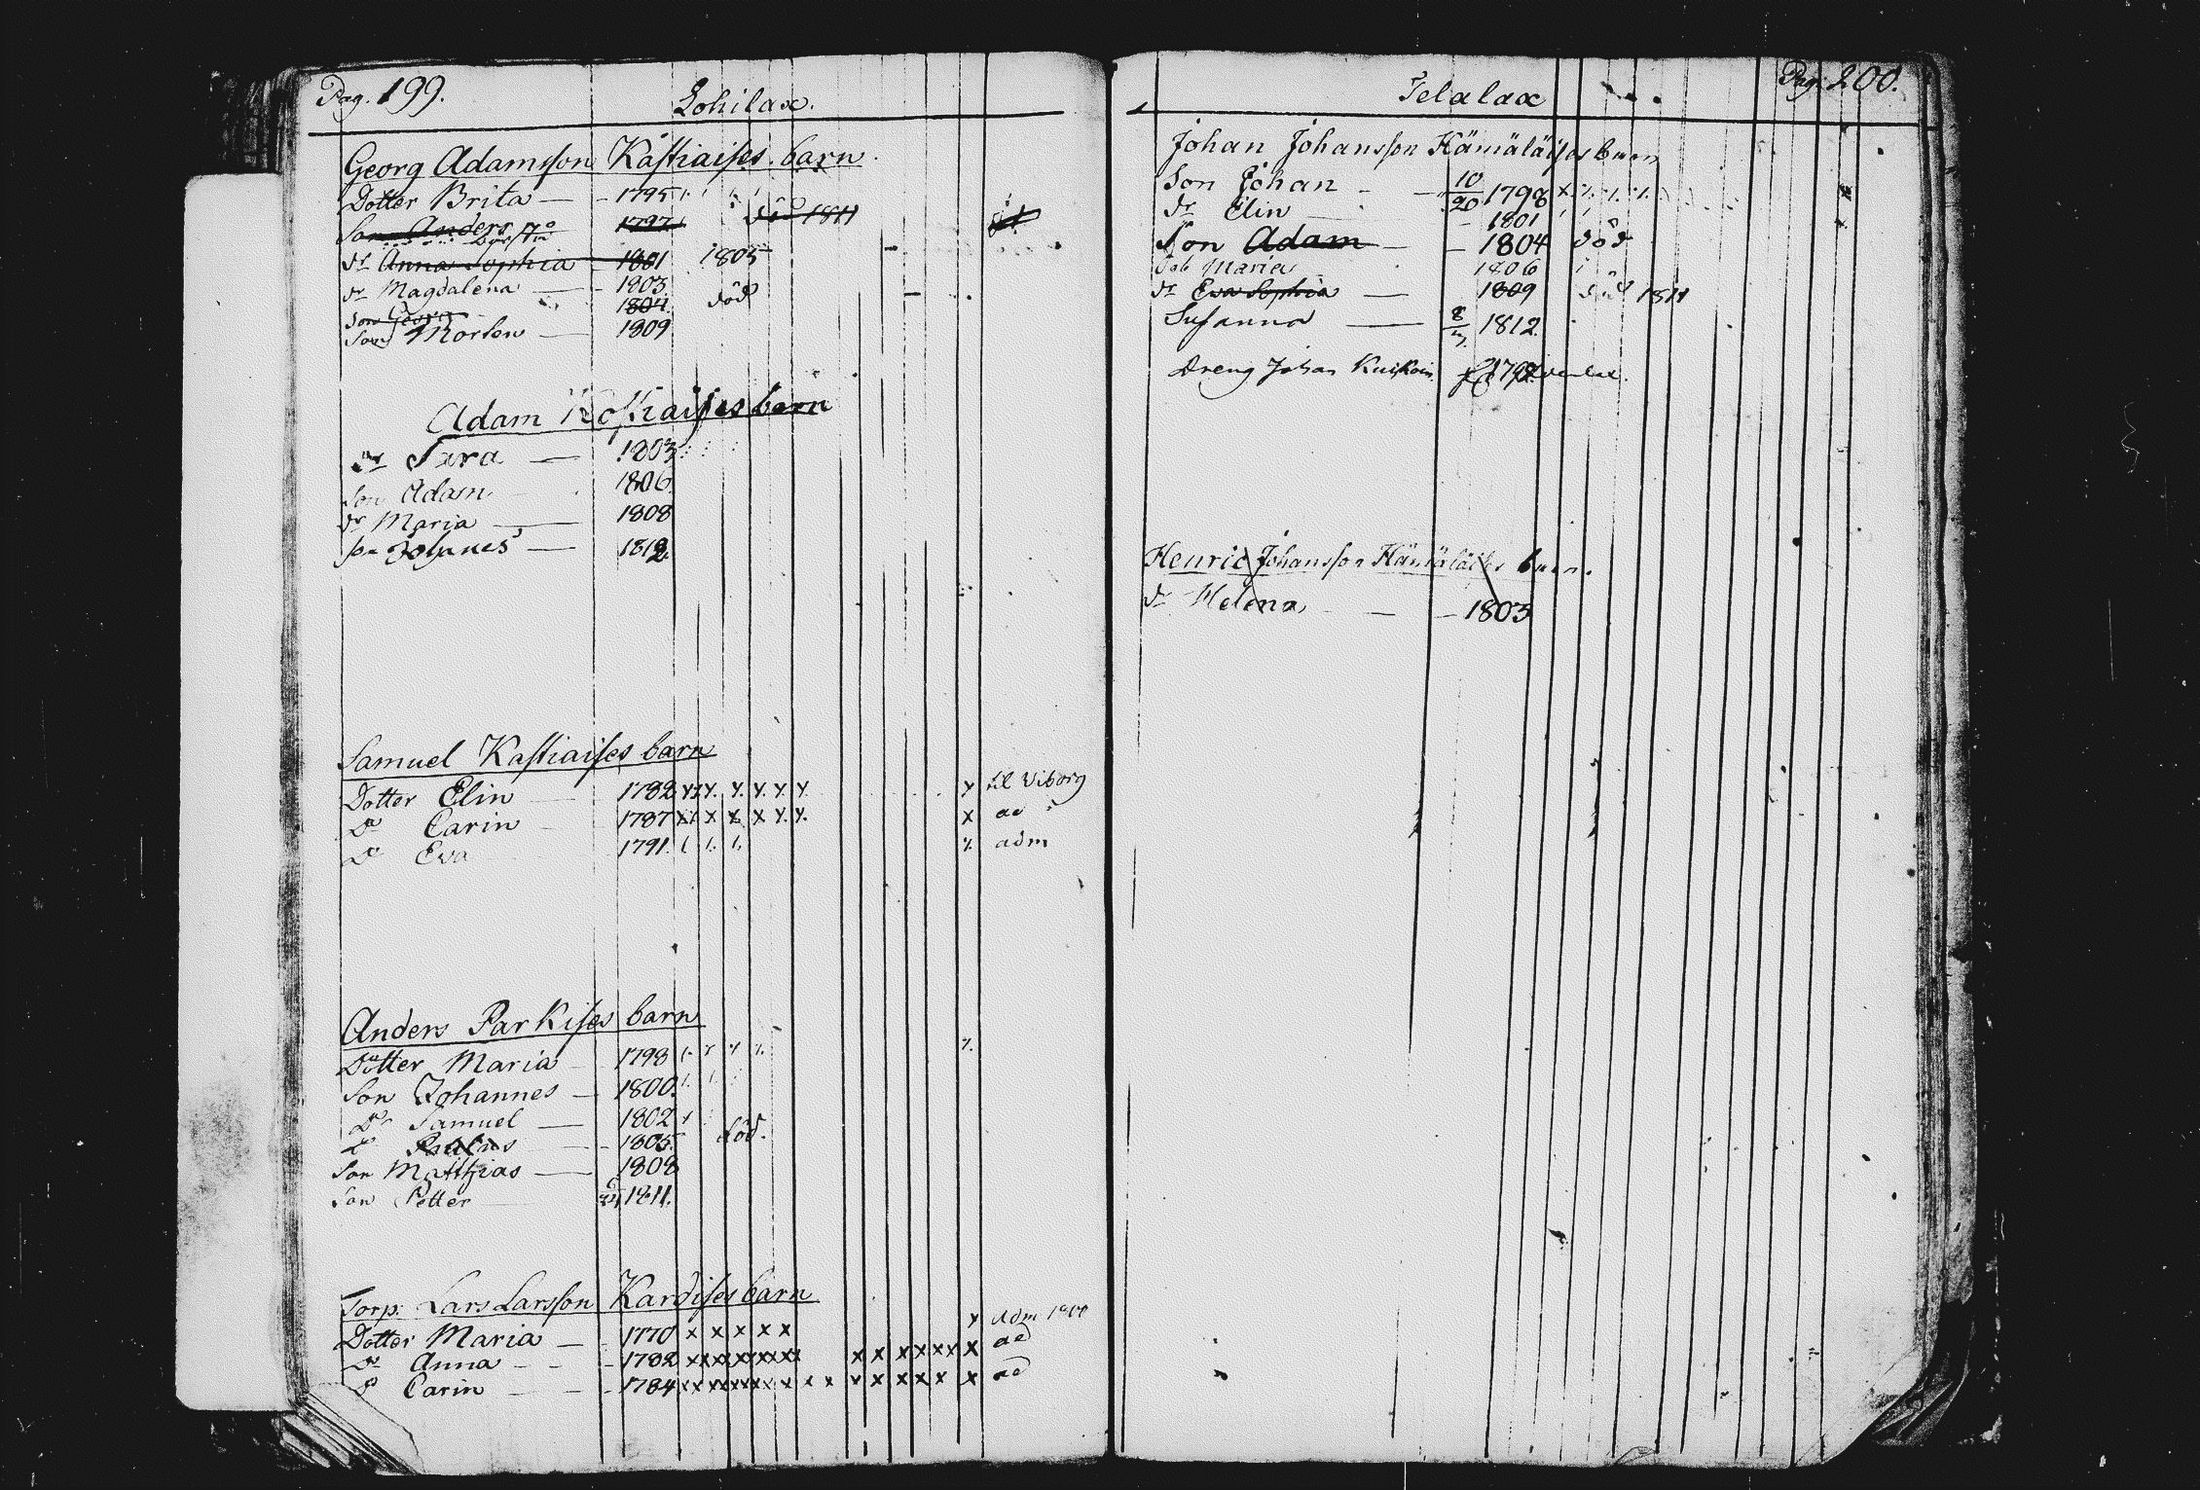 Pag. 199.
Lohilax.
Georg Adamsson Kastiaises barn
Dotter Brita 1795
Son Anders 1797 död 1811
dr Anna Sophia 1801 1805
dr Magdalena 1803
Son Georg 1804 död
Son Morten 1809
Adam Kostiaises barn
dr Sara 1803
Son Adam 1806
dr Maria 1808
son Johannes 1812
Samuel Kastiaises barn
Dotter Elin 1782 x til Viborg
Dr Carin 1787 x x x x x x ad
Dr Eva 1791 adm
Anders Parkises barn
Dotter Maria 1798
Son Johannes 1800
Dr Samuel 1802
1805 död.
Son Matthias 1808
Son Petter 1811.
Torp: Lars Larsson Kardises barn
Dotter Maria 1770 x x x x x x adm 1800
Dr Anna 1782 ad
Dr Carin 1784 ad
Pag. 200.
Telalax
Johan Johansson Hämäläises barn
Son Johan 10/20 1798
dr Elin 1801
Son Adam 1804 död
Maria 1806
dr Eva Sophia 1809 död 1811
Susanna 1812.
Dreng Johan
Henric Johansson Hämäläises barn.
dr Helena 1803